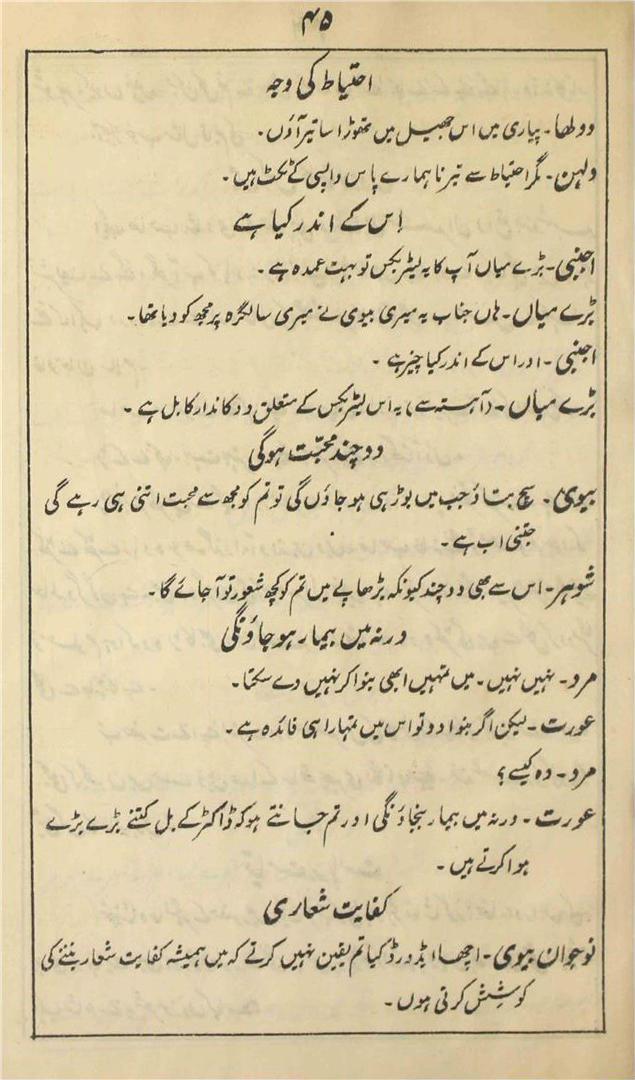 ۴۵
احتیاط کی وجہ
دولھا۔ پیاری میں اس جھیل میں تھوڑا سا تیر آؤں۔
دلہن۔ مگر احتیاط سے تیرنا ہمارے پاس واپسی کے ٹکٹ ہیں۔
اِس کے اندر کیا ہے
اجنبی۔ بڑے میاں آپ کا یہ لیٹر بکس تو بہت عمدہ ہے۔
بڑے میاں۔ ہاں جناب یہ میری بیوی نے میری سالگرہ پر مجھ کو دیا تھا۔
اجنبی۔ اور اس کے اندر کیا چیز ہے۔
بڑے میاں۔ (آہستہ سے) یہ اس لیٹر بکس کے متعلق دوکاندار کا بل ہے۔
دوچند محبّت ہوگی
بیوی۔ سچ بتاؤ جب میں بوڑہی ہو جاؤں گی تو تم کو مجھ سے محبت اتنی ہی رہے گی
جتنی اب ہے۔
شوہر۔ اس سے بھی دوچند کیونکہ بڑھاپے میں تم کو کچھ شعور تو آ جائے گا۔
ورنہ میں بیمار ہو جاؤنگی
مرد۔ نہیں نہیں۔ میں تمہیں ابھی بنوا کر نہیں دے سکتا۔
عورت۔ لیکن اگر بنوا دو تو اس میں تمہارا ہی فائدہ ہے۔
مرد۔ وہ کیسے؟
عورت۔ ورنہ میں بیمار بنجاؤنگی اور تم جانتے ہو کہ ڈاکٹر کے بل کتنے بڑے بڑے
ہوا کرتے ہیں۔
کفایت شعاری
نوجوان بیوی۔ اچھا ایڈورڈ کیا تم یقین نہیں کرتے کہ میں ہمیشہ کفایت شعار بننے کی
کوشش کرتی ہوں۔